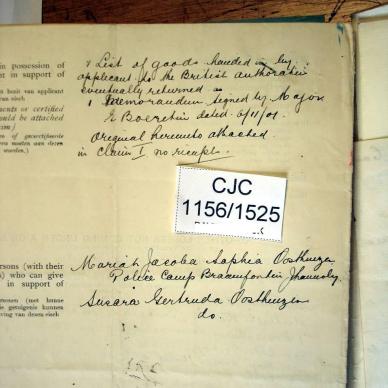 in possession of
t in support of
in bezit van applicant
van eisch
ments or certified
ould be attached
aim)
of gecertifieerde
moeten aan deze
worden.)
1 List of goods handed in by
applicant to the British authorities
eventually returned as
1 Memorandum signed by Major
E Boeretin dated 6/11/01.
Original herewith attached.
in Claim I no receipt.
CJC
1156/1525
ersons (with their
) who can give
in support of
ersonen (met hunne
getuigenis kunnen
ving van dezen eisch
Maria Jacoba Sophia Oosthuizen
Police Camp Braamfontein Jhannesbg.
Susara Gertruda Oosthuizen
do.